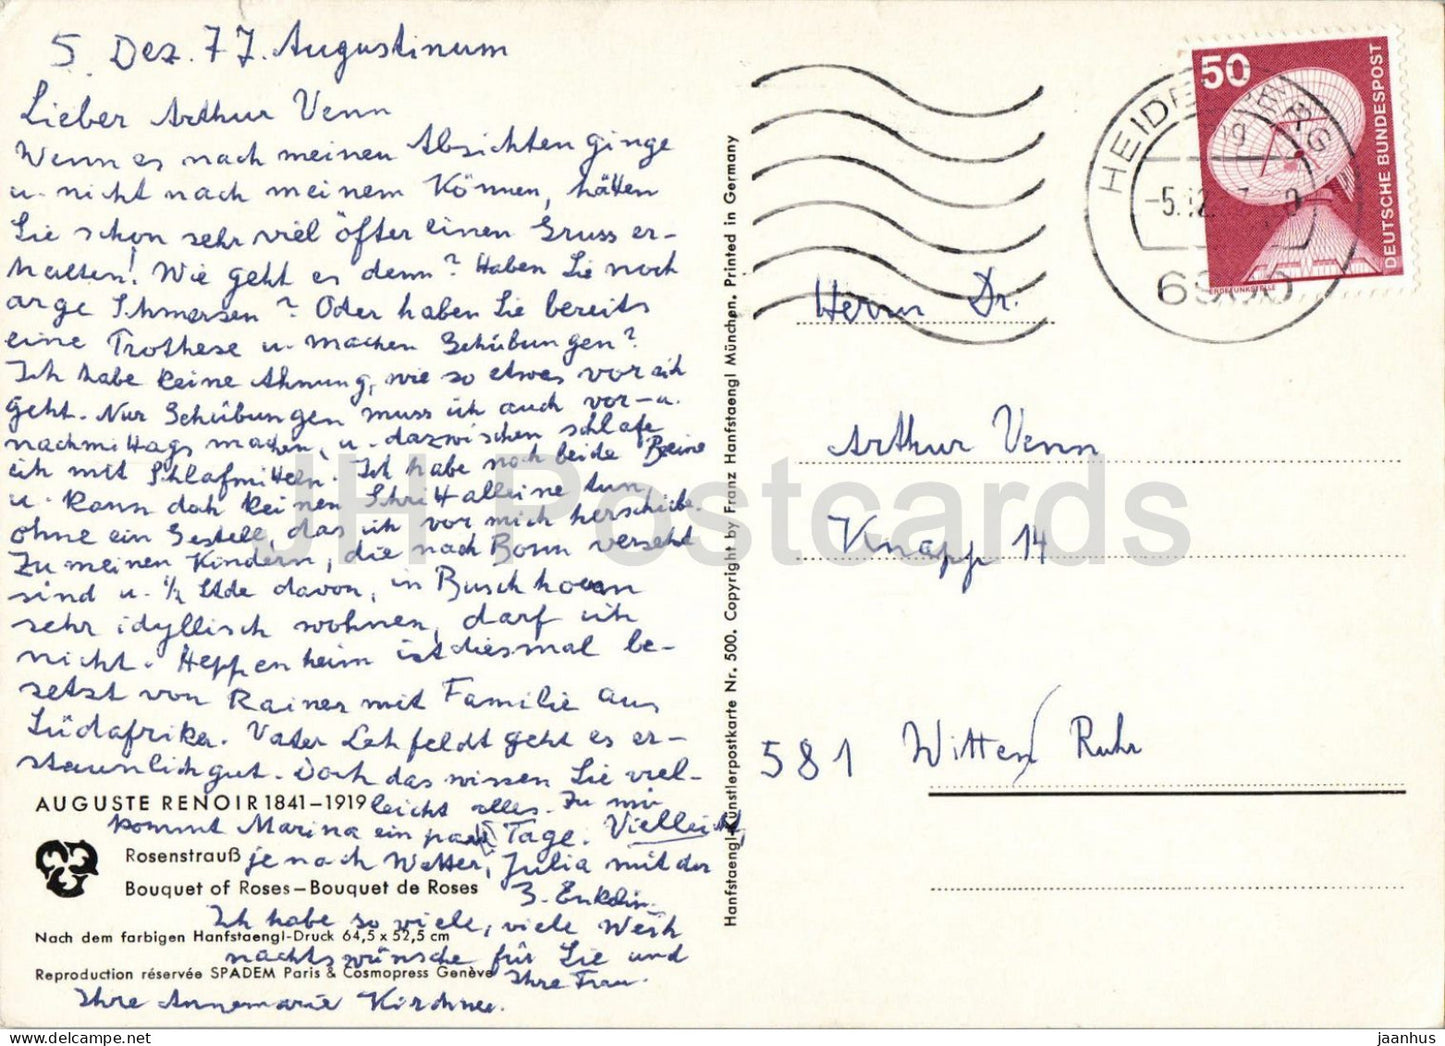 5. Dez. 77. Augustinum
Lieber Arthur Venn
Wenn es nach meinen Absichten ginge
u. nicht nach meinem Können, hätten
Sie schon sehr viel öfter einen Gruss er-
halten! Wie geht es denn? Haben Sie noch
arge Schmerzen? Oder haben Sie bereits
eine Prothese u. machen Gehübungen?
Ich habe keine Ahnung, wie so etwas vor sich
geht. Nur Gehübungen muss ich auch vor- u.
nachmittags machen, u. dazwischen schlafe
ich mit Schlafmitteln. Ich habe noch beide Beine
u. kann doch keinen Schritt alleine tun,
ohne ein Gestell, das ich vor mich herschiebe.
Zu meinen Kindern, die nach Bonn versetzt
sind u. ½ Stde davon, in Buschhoven
sehr idyllisch wohnen, darf ich
nicht. Heppenheim ist diesmal be-
setzt von Rainer mit Familie aus
Südafrika. Vater Lehfeldt geht es er-
staunlich gut. Doch das wissen Sie viel-
leicht alles. Zu mir
kommt Marina ein paar Tage. Vielleicht,
je nach Wetter, Julia mit der
3. Enkelin.
Ich habe so viele, viele Weih
nachtswünsche für Sie und
Ihre Frau.
Ihre Annemarie Kirchner.
AUGUSTE RENOIR 1841–1919
Rosenstrauß
Bouquet of Roses – Bouquet de Roses
Nach dem farbigen Hanfstaengl-Druck 64,5 x 52,5 cm
Reproduction réservée SPADEM Paris & Cosmopress Genève
Hanfstaengl-Künstlerpostkarte Nr. 500. Copyright by Franz Hanfstaengl München. Printed in Germany
50
DEUTSCHE BUNDESPOST
ERDEFUNKSTELLE
HEIDELBERG
-5.12.
6900
Herrn Dr.
Arthur Venn
Knapp 14
581 Witten/Ruhr
JH Postcards
jaanhus @ delcampe.net